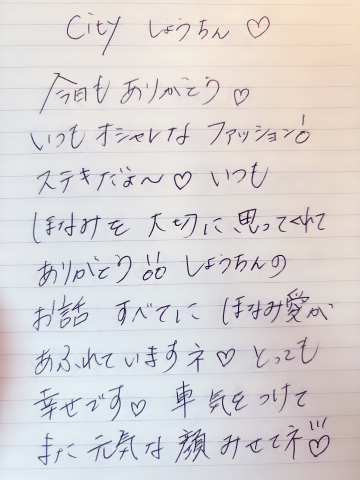 City しょうちん ♡
今日も ありがとう ♡
いつも オシャレな ファッション!
ステキだぁ〜 ♡ いつも
ほなみを 大切に 思ってくれて
ありがとう!! しょうちんの
お話 すべてに ほなみ愛が
あふれていますネ ♡ とっても
幸せです♡ 車 気をつけて
また 元気な 顔 みせてネ!!♡